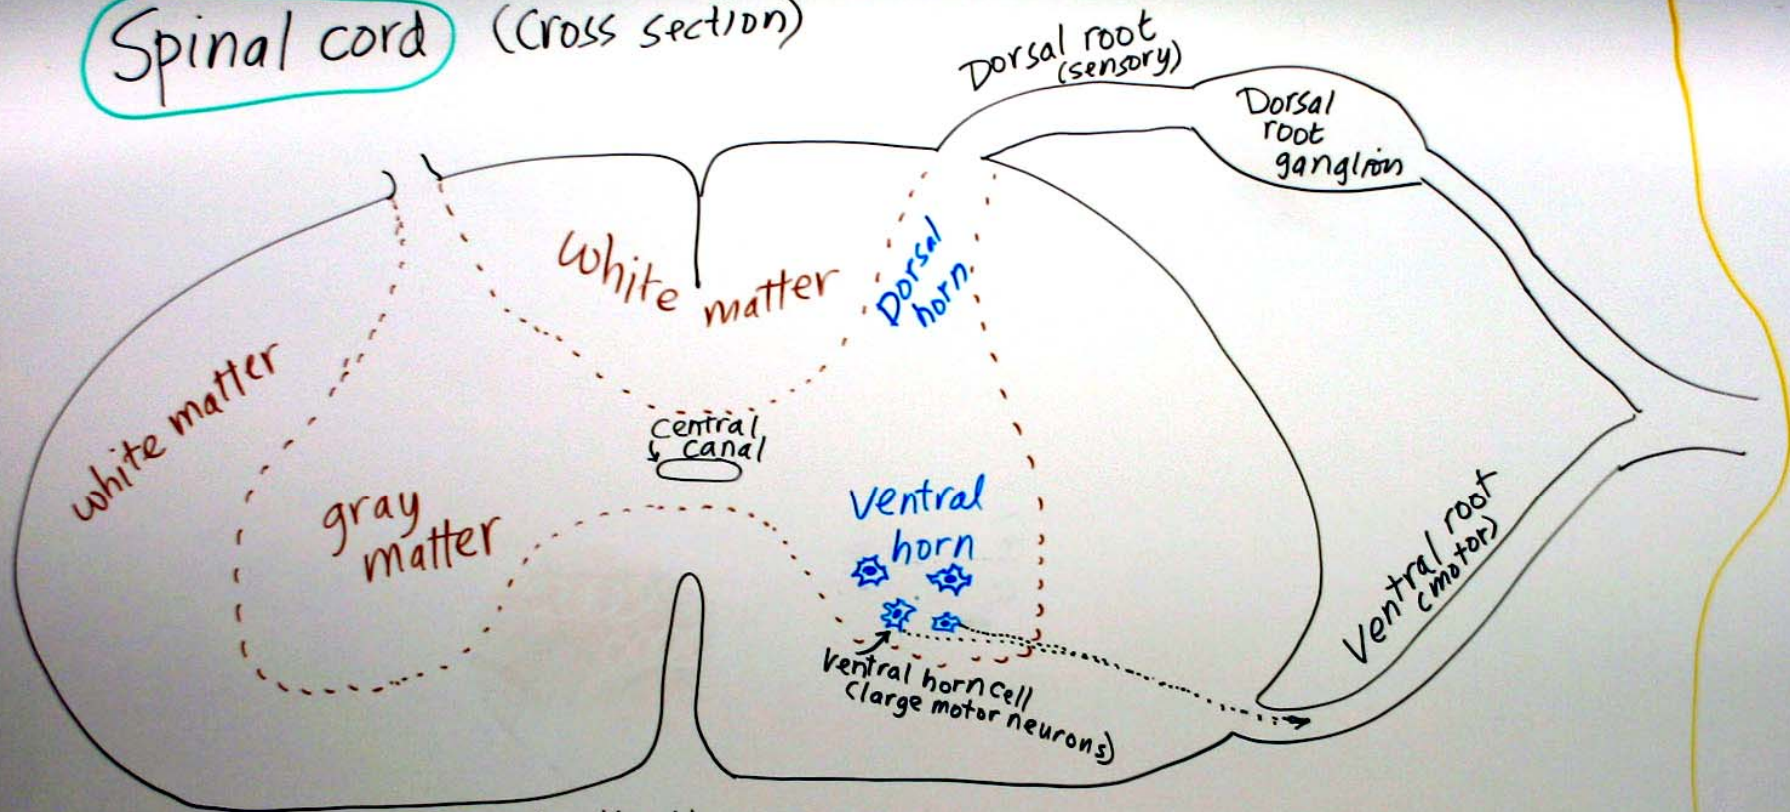 Spinal cord (Cross section)
Dorsal root
(sensory)
Dorsal
root
ganglion
white matter
Dorsal
horn
white matter
central
canal
gray
matter
Ventral
horn
Ventral root
(motor)
Ventral horn cell
(large motor neurons)